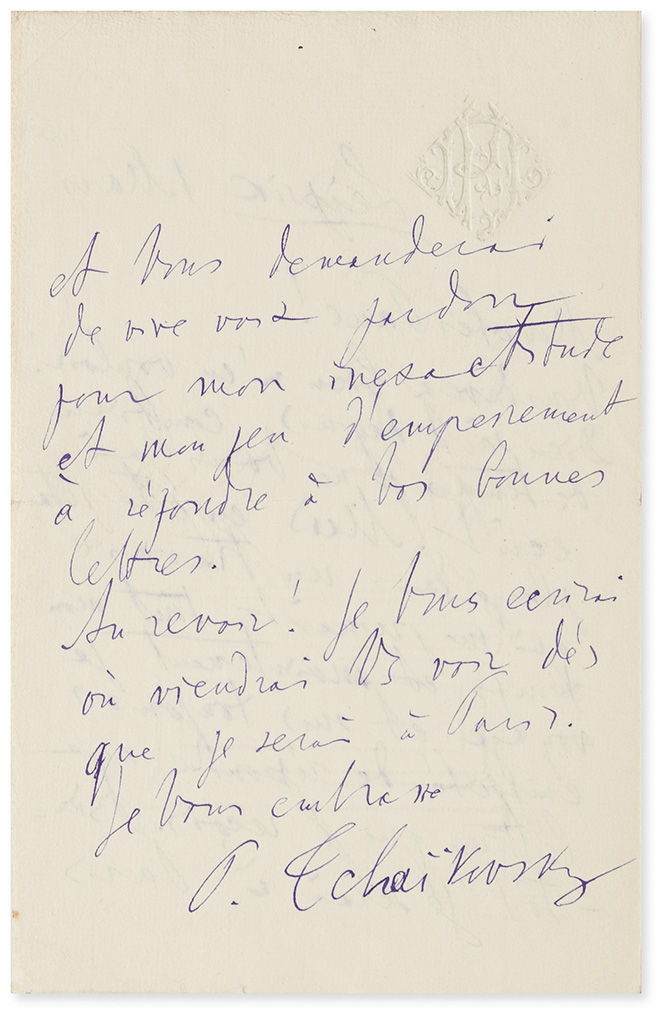 et vous demanderai
de vive voix pardon
pour mon inexactitude
et mon peu d'empressement
à répondre à vos bonnes
lettres.
Au revoir! Je vous ecrirai
où viendrai Vs voir dès
que je serai à Paris.
Je vous embrasse
P. Tchaïkovsky